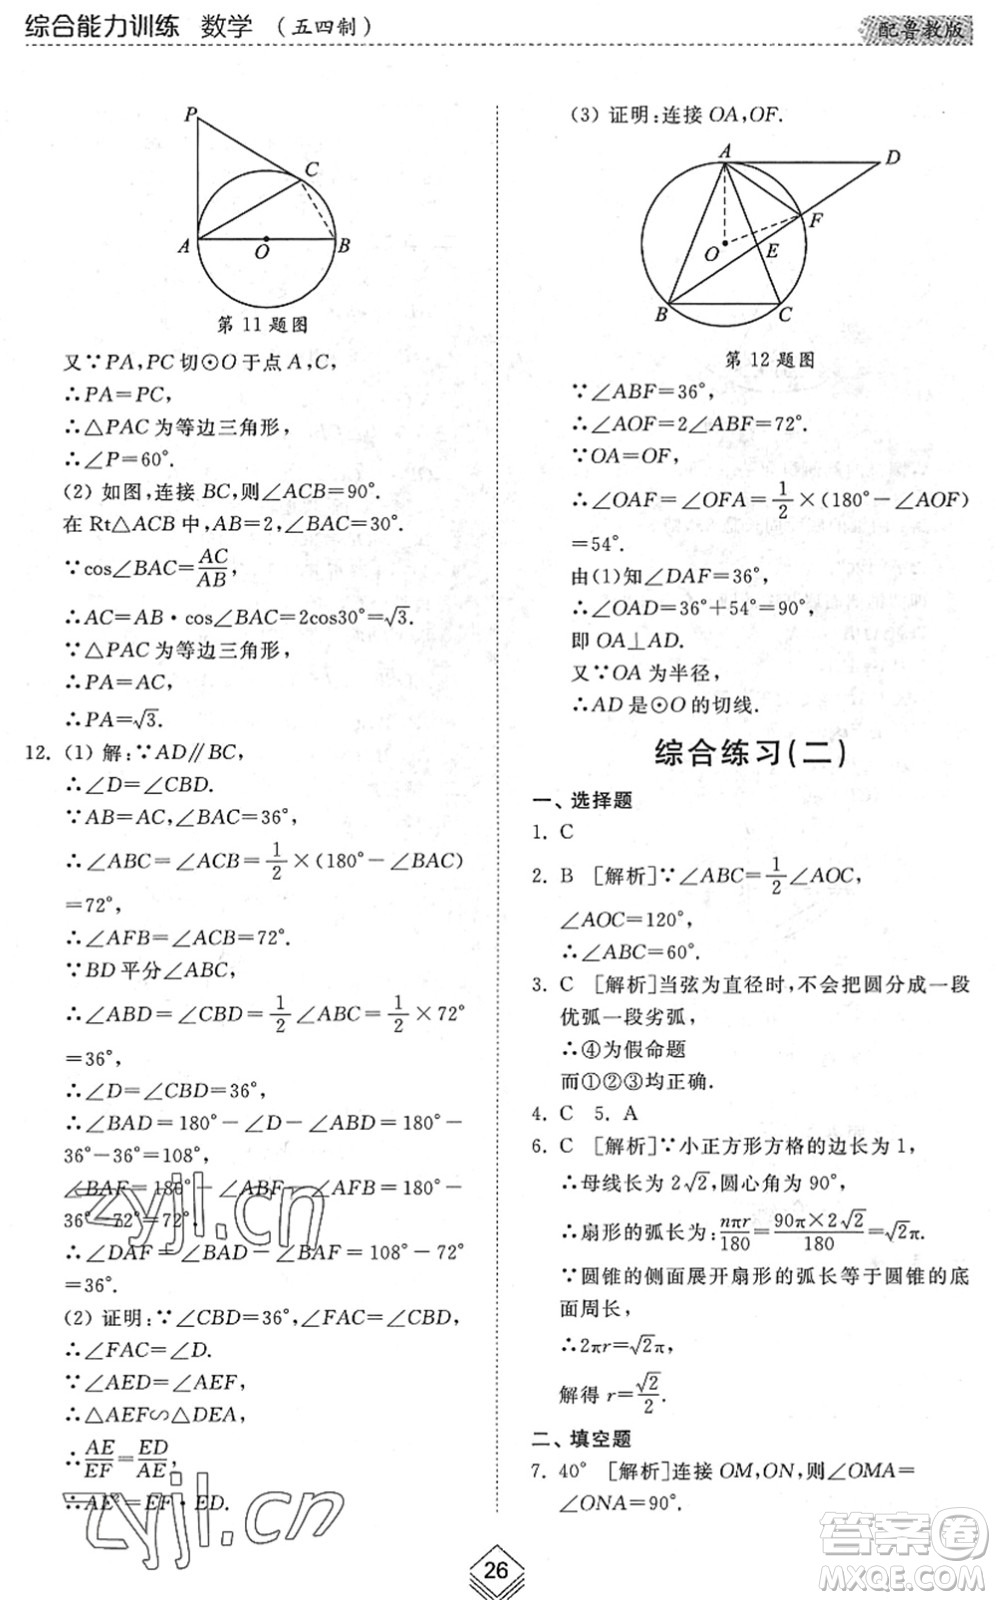 综合能力训练 数学 (五四制)
配鲁教版
P
C
A
O
B
第 11 题图
又∵PA,PC 切⊙O 于点 A,C,
∴PA=PC,
∴△PAC 为等边三角形,
∴∠P=60°.
(2) 如图,连接 BC,则∠ACB=90°.
在 Rt△ACB 中,AB=2,∠BAC=30°.
∵cos∠BAC=AC/AB,
∴AC=AB·cos∠BAC=2cos30°=√3.
∵△PAC 为等边三角形,
∴PA=AC,
∴PA=√3.
12. (1) 解:∵AD∥BC,
∴∠D=∠CBD.
∵AB=AC,∠BAC=36°,
∴∠ABC=∠ACB=1/2×(180°-∠BAC)
=72°,
∴∠AFB=∠ACB=72°.
∵BD 平分∠ABC,
∴∠ABD=∠CBD=1/2∠ABC=1/2×72°
=36°,
∴∠D=∠CBD=36°,
∴∠BAD=180°-∠D-∠ABD=180°-
36°-36°=108°,
∠BAF=180°-∠ABF-∠AFB=180°-
36°-72°=72°,
∴∠DAF=∠BAD-∠BAF=108°-72°
=36°.
(2) 证明:∵∠CBD=36°,∠FAC=∠CBD,
∴∠FAC=∠D.
∵∠AED=∠AEF,
∴△AEF∽△DEA,
∴AE/EF=ED/AE,
∴AE²=EF·ED.
(3) 证明:连接 OA,OF.
A
D
F
O
E
B
C
第 12 题图
∵∠ABF=36°,
∴∠AOF=2∠ABF=72°.
∵OA=OF,
∴∠OAF=∠OFA=1/2×(180°-∠AOF)
=54°.
由(1)知∠DAF=36°,
∴∠OAD=36°+54°=90°,
即 OA⊥AD.
又∵OA 为半径,
∴AD 是⊙O 的切线.
综合练习(二)
一、选择题
1. C
2. B [解析]∵∠ABC=1/2∠AOC,
∠AOC=120°,
∴∠ABC=60°.
3. C [解析]当弦为直径时,不会把圆分成一段
优弧一段劣弧,
∴④为假命题
而①②③均正确.
4. C 5. A
6. C [解析]∵小正方形方格的边长为 1,
∴母线长为 2√2,圆心角为 90°,
∴扇形的弧长为:nπr/180=90π×2√2/180=√2π,
∵圆锥的侧面展开扇形的弧长等于圆锥的底
面周长,
∴2πr=√2π,
解得 r=√2/2.
二、填空题
7. 40° [解析]连接 OM,ON,则∠OMA=
∠ONA=90°.
26
zyjl.cn
zyjl.cn
答案圈
MXQE.COM